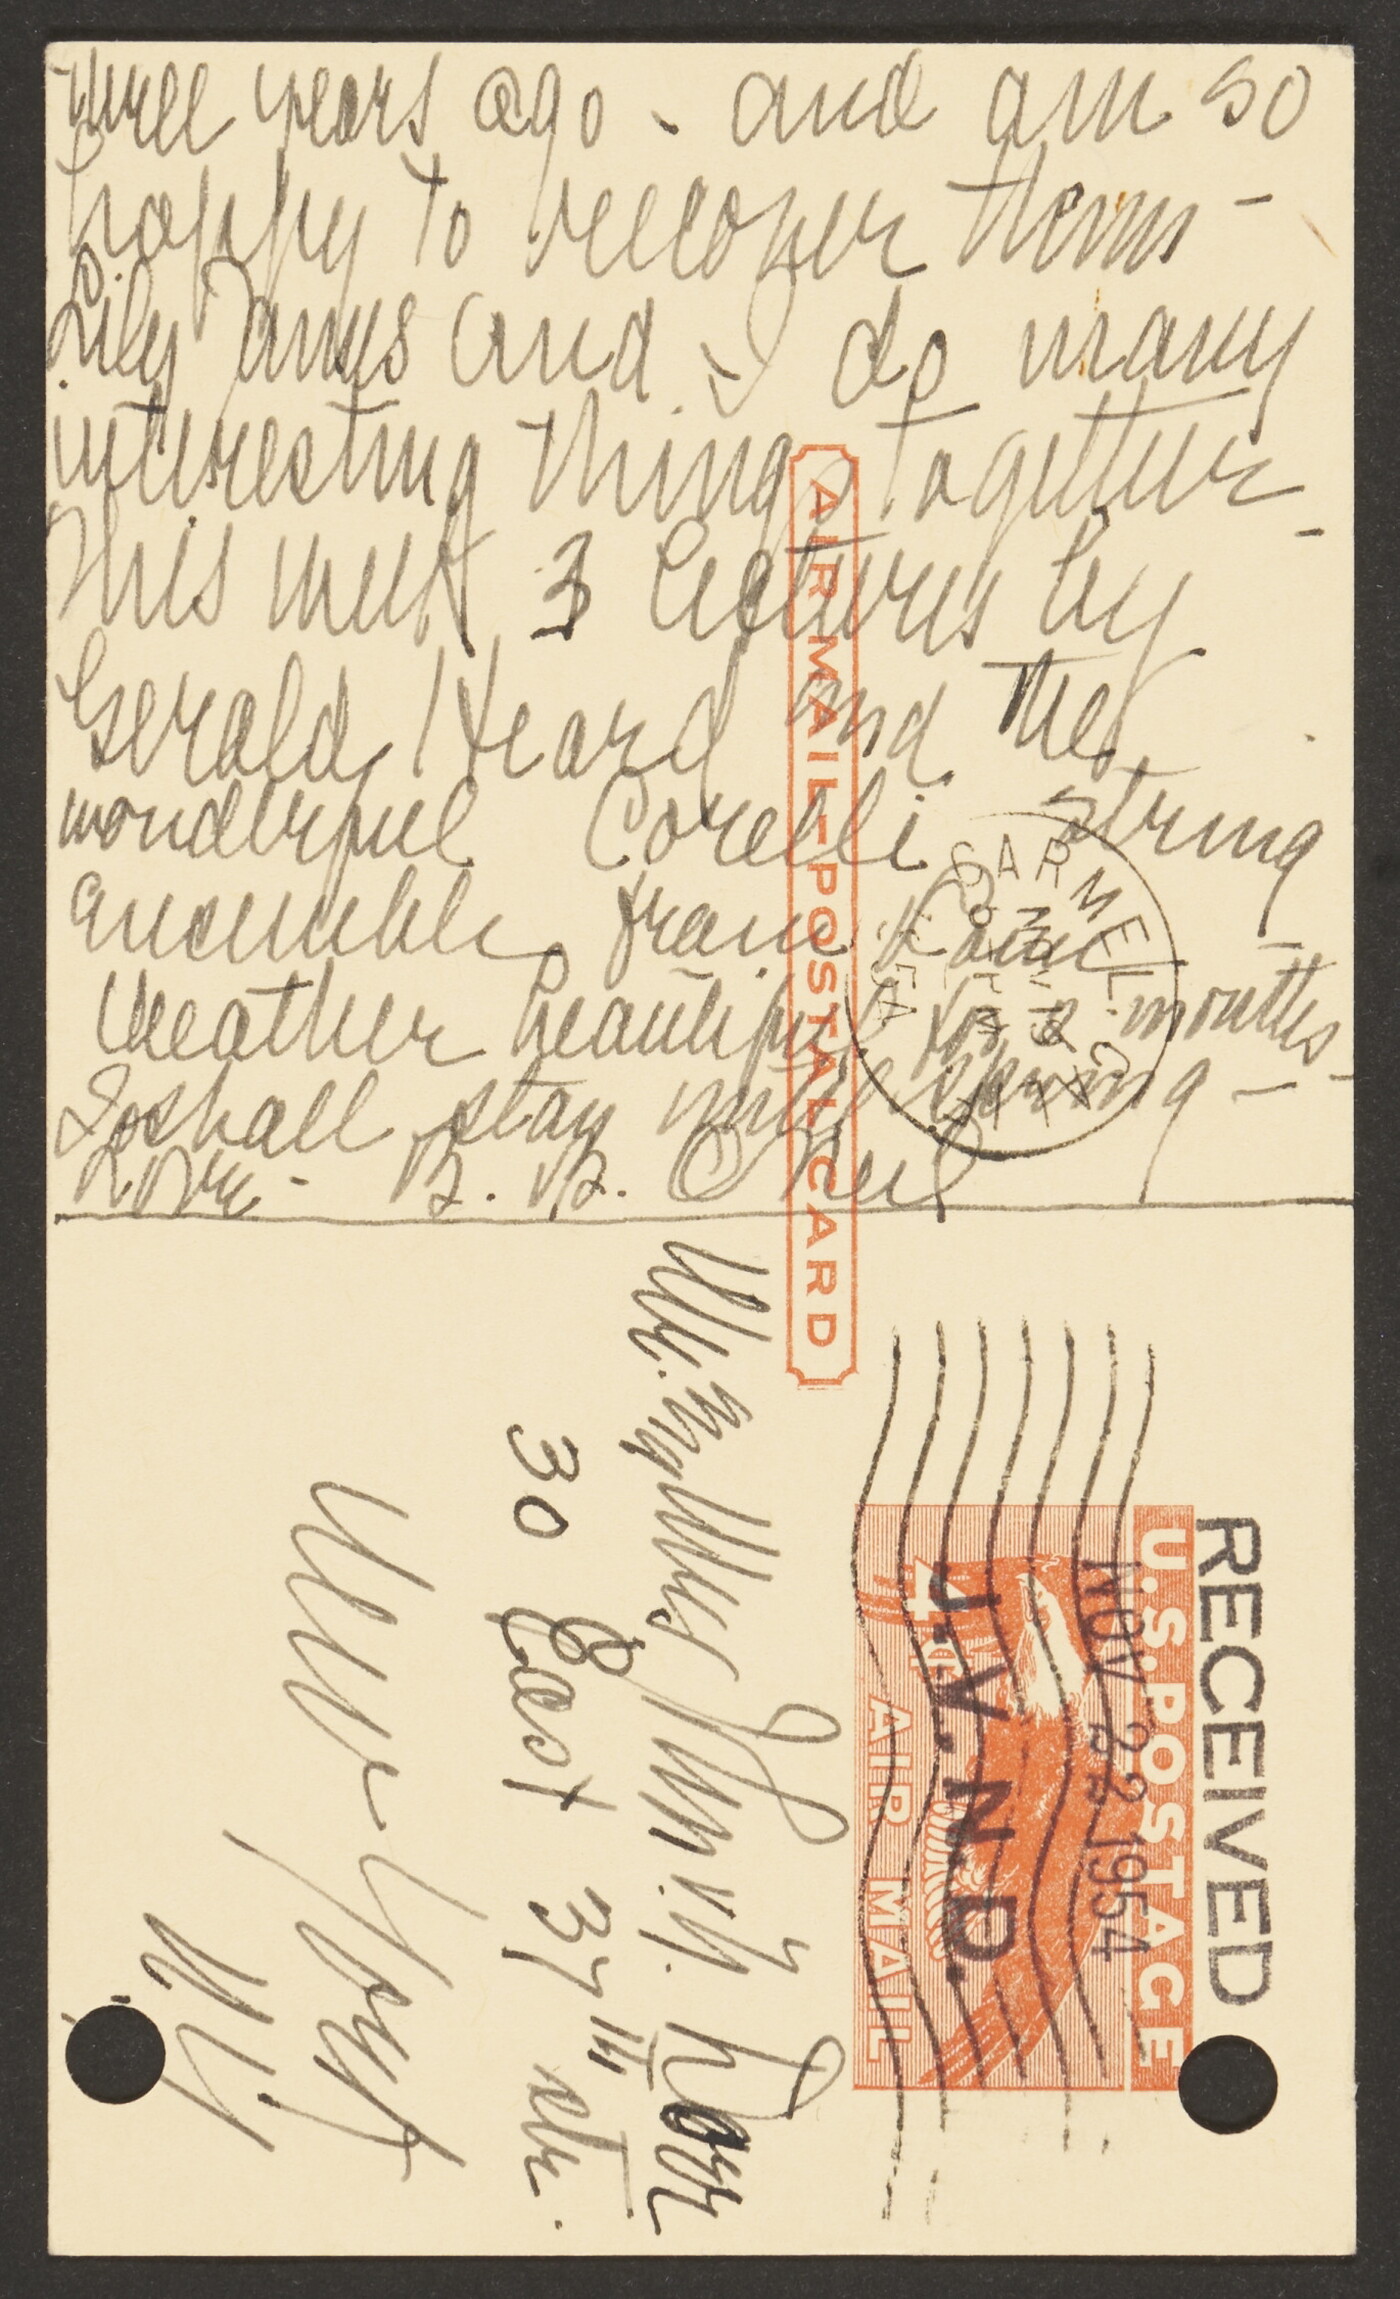 three years ago - and am so
happy to recover them -
Lily and I do many
interesting things together -
This week 3 lectures by
Gerald Heard and the
wonderful Corelli string
ensemble from Rome -
Weather beautiful for 2 months -
I shall stay until spring -
Love - B. B. O'Neil
AIR MAIL-POSTAL CARD
CARMEL. CALIF.
NOV 19
1954
Mr.
30 East 37th str.
New York
N.Y.
U.S. POSTAGE
4¢
AIR MAIL
RECEIVED
NOV 22 1954
J.V.N.D.